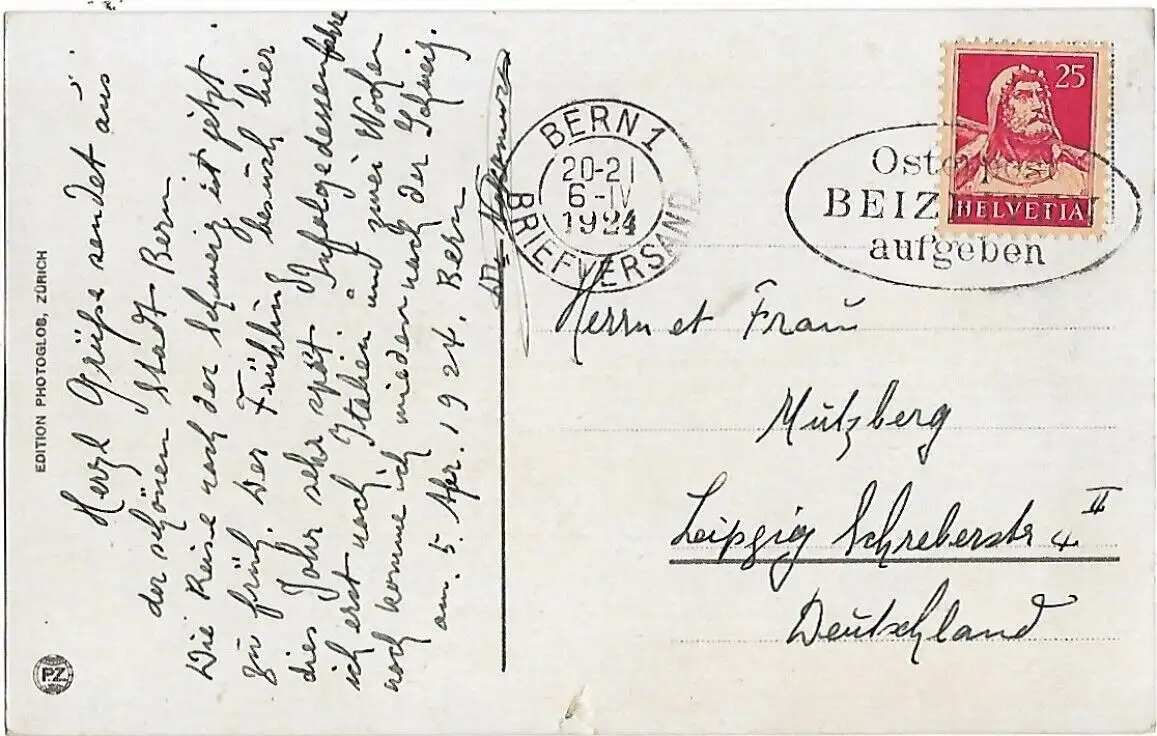 Herzl Grüße sendet aus
der schönen Stadt Bern
Die Reise nach der Schweiz ist jetzt
zu früh. Der Frühling besuch hier
dies Jahr sehr spät. Infolgedessen fahre
ich erst nach Italien und zwei Wochen
noch komme ich wieder nach der Schweiz.
am. 5. Apr. 1924. Bern
EDITION PHOTOGLOB, ZÜRICH
PZ
BERN 1
20-21
6-IV
1924
BRIEFVERSAND
Osterpost
BEIZ
aufgeben
25
HELVETIA
Herrn et Frau
Mutzberg
Leipzig Schreberstr 4 II
Deutschland